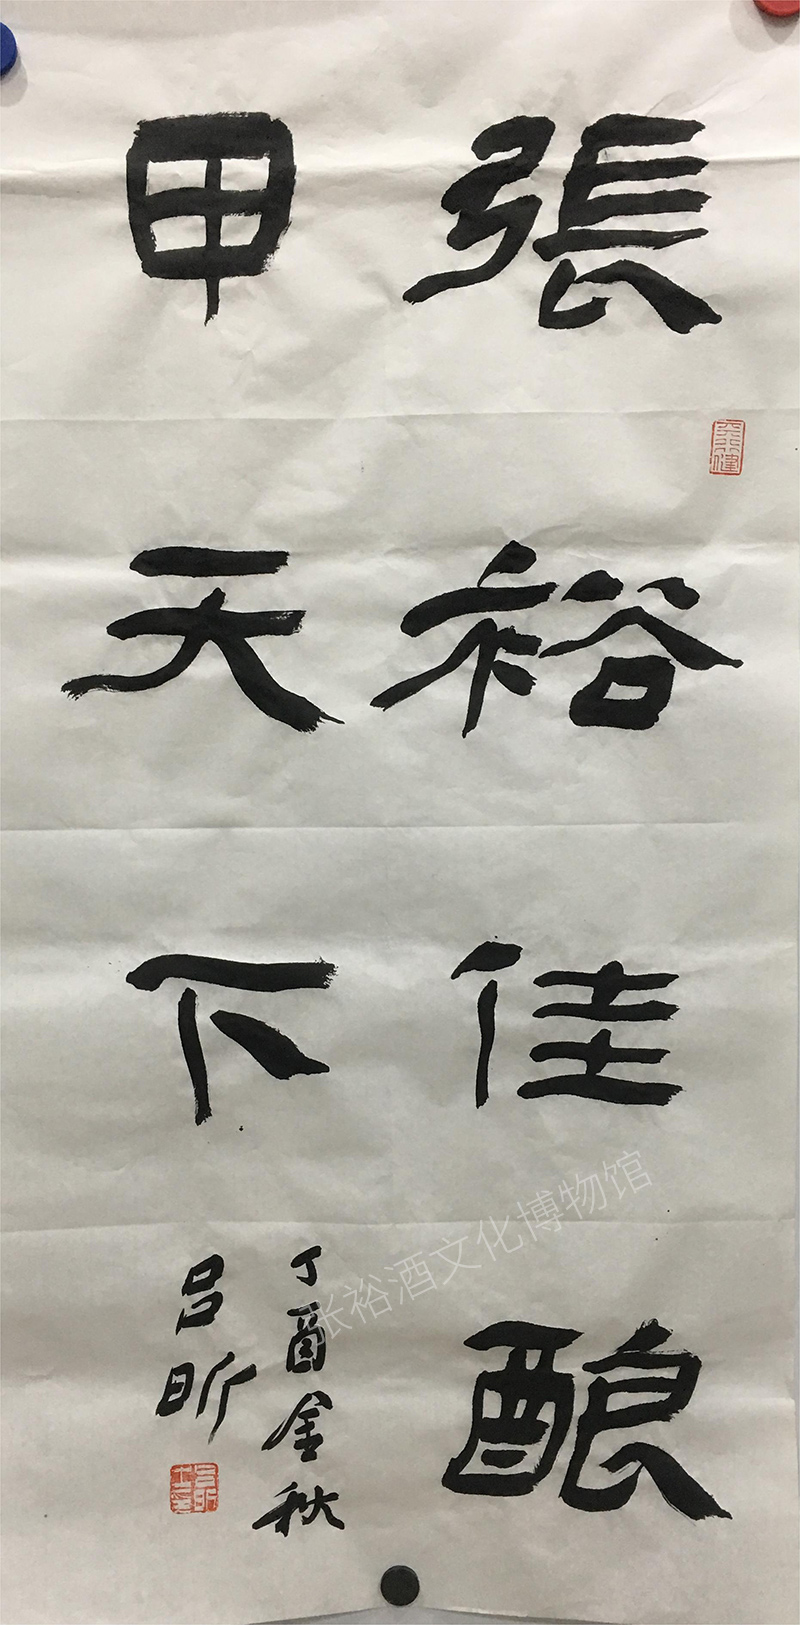 張裕佳酿
甲天下
丁酉金秋
吕昕
张裕酒文化博物馆